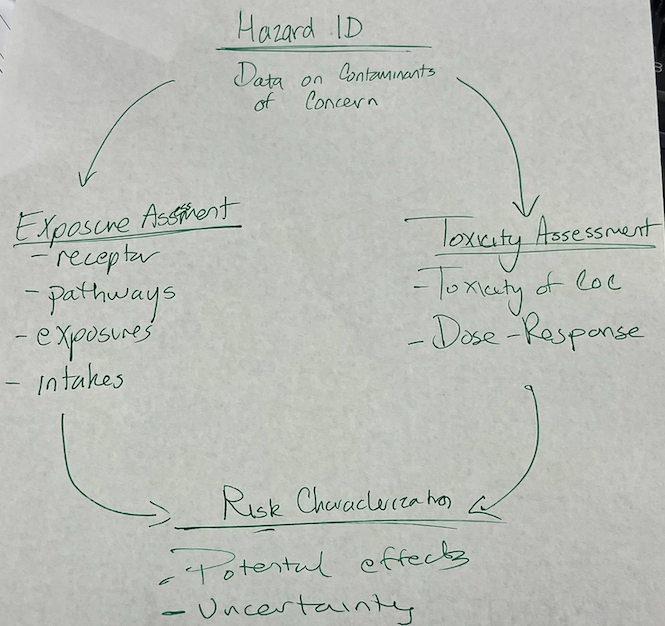 Hazard ID
Data on Contaminants
of Concern
Exposure Assessment
- receptor
- pathways
- exposures
- intakes
Toxicity Assessment
- Toxicity of CoC
- Dose-Response
Risk Characterization
- Potental effects
- Uncertainty